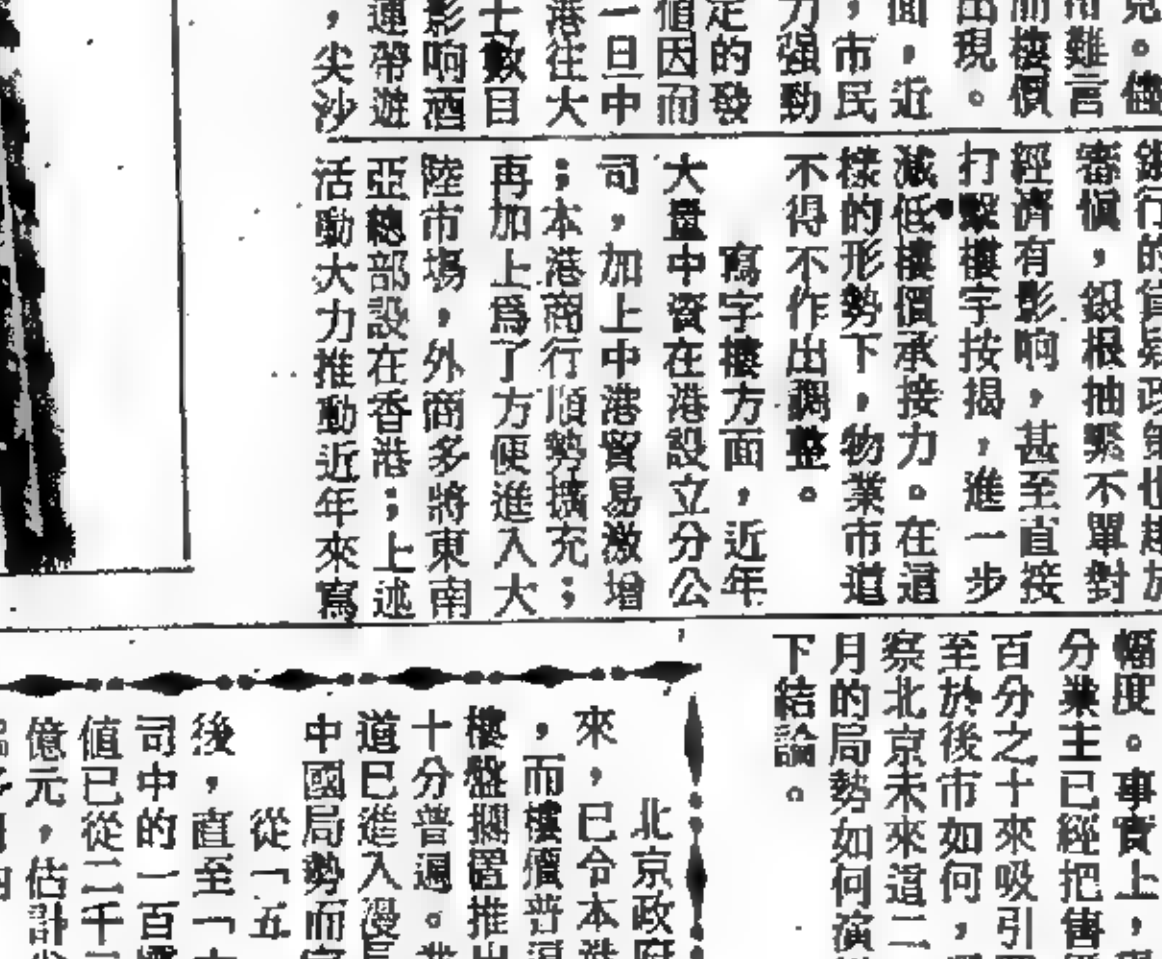 見。儘
難言
而樓價
出現。
面，近
，市民
力強勁
定的發
值因而
一旦中
港往大
士數目
影响酒
連帶遊
，尖沙
審慎，銀根抽緊不單對
經濟有影响，甚至直接
打擊樓宇按揭，進一步
減低樓價承接力。在這
樣的形勢下，物業市道
不得不作出調整。
寫字樓方面，近年
大量中資在港設立分公
司，加上中港貿易激增
；本港商行順勢擴充；
再加上爲了方便進入大
陸市場，外商多將東南
亞總部設在香港；上述
活動大力推動近年來寫
幅度。事實上，
分業主已經把售
百分之十來吸引
至於後市如何，
察北京未來這二
月的局勢如何演
下結論。
北京政府
來，已令本港
，而樓價普
樓盤擱置推出
十分普遍。
道已進入漫長
中國局勢而
從「五
後，直至「
司中的一百
值已從二千
億元，估計